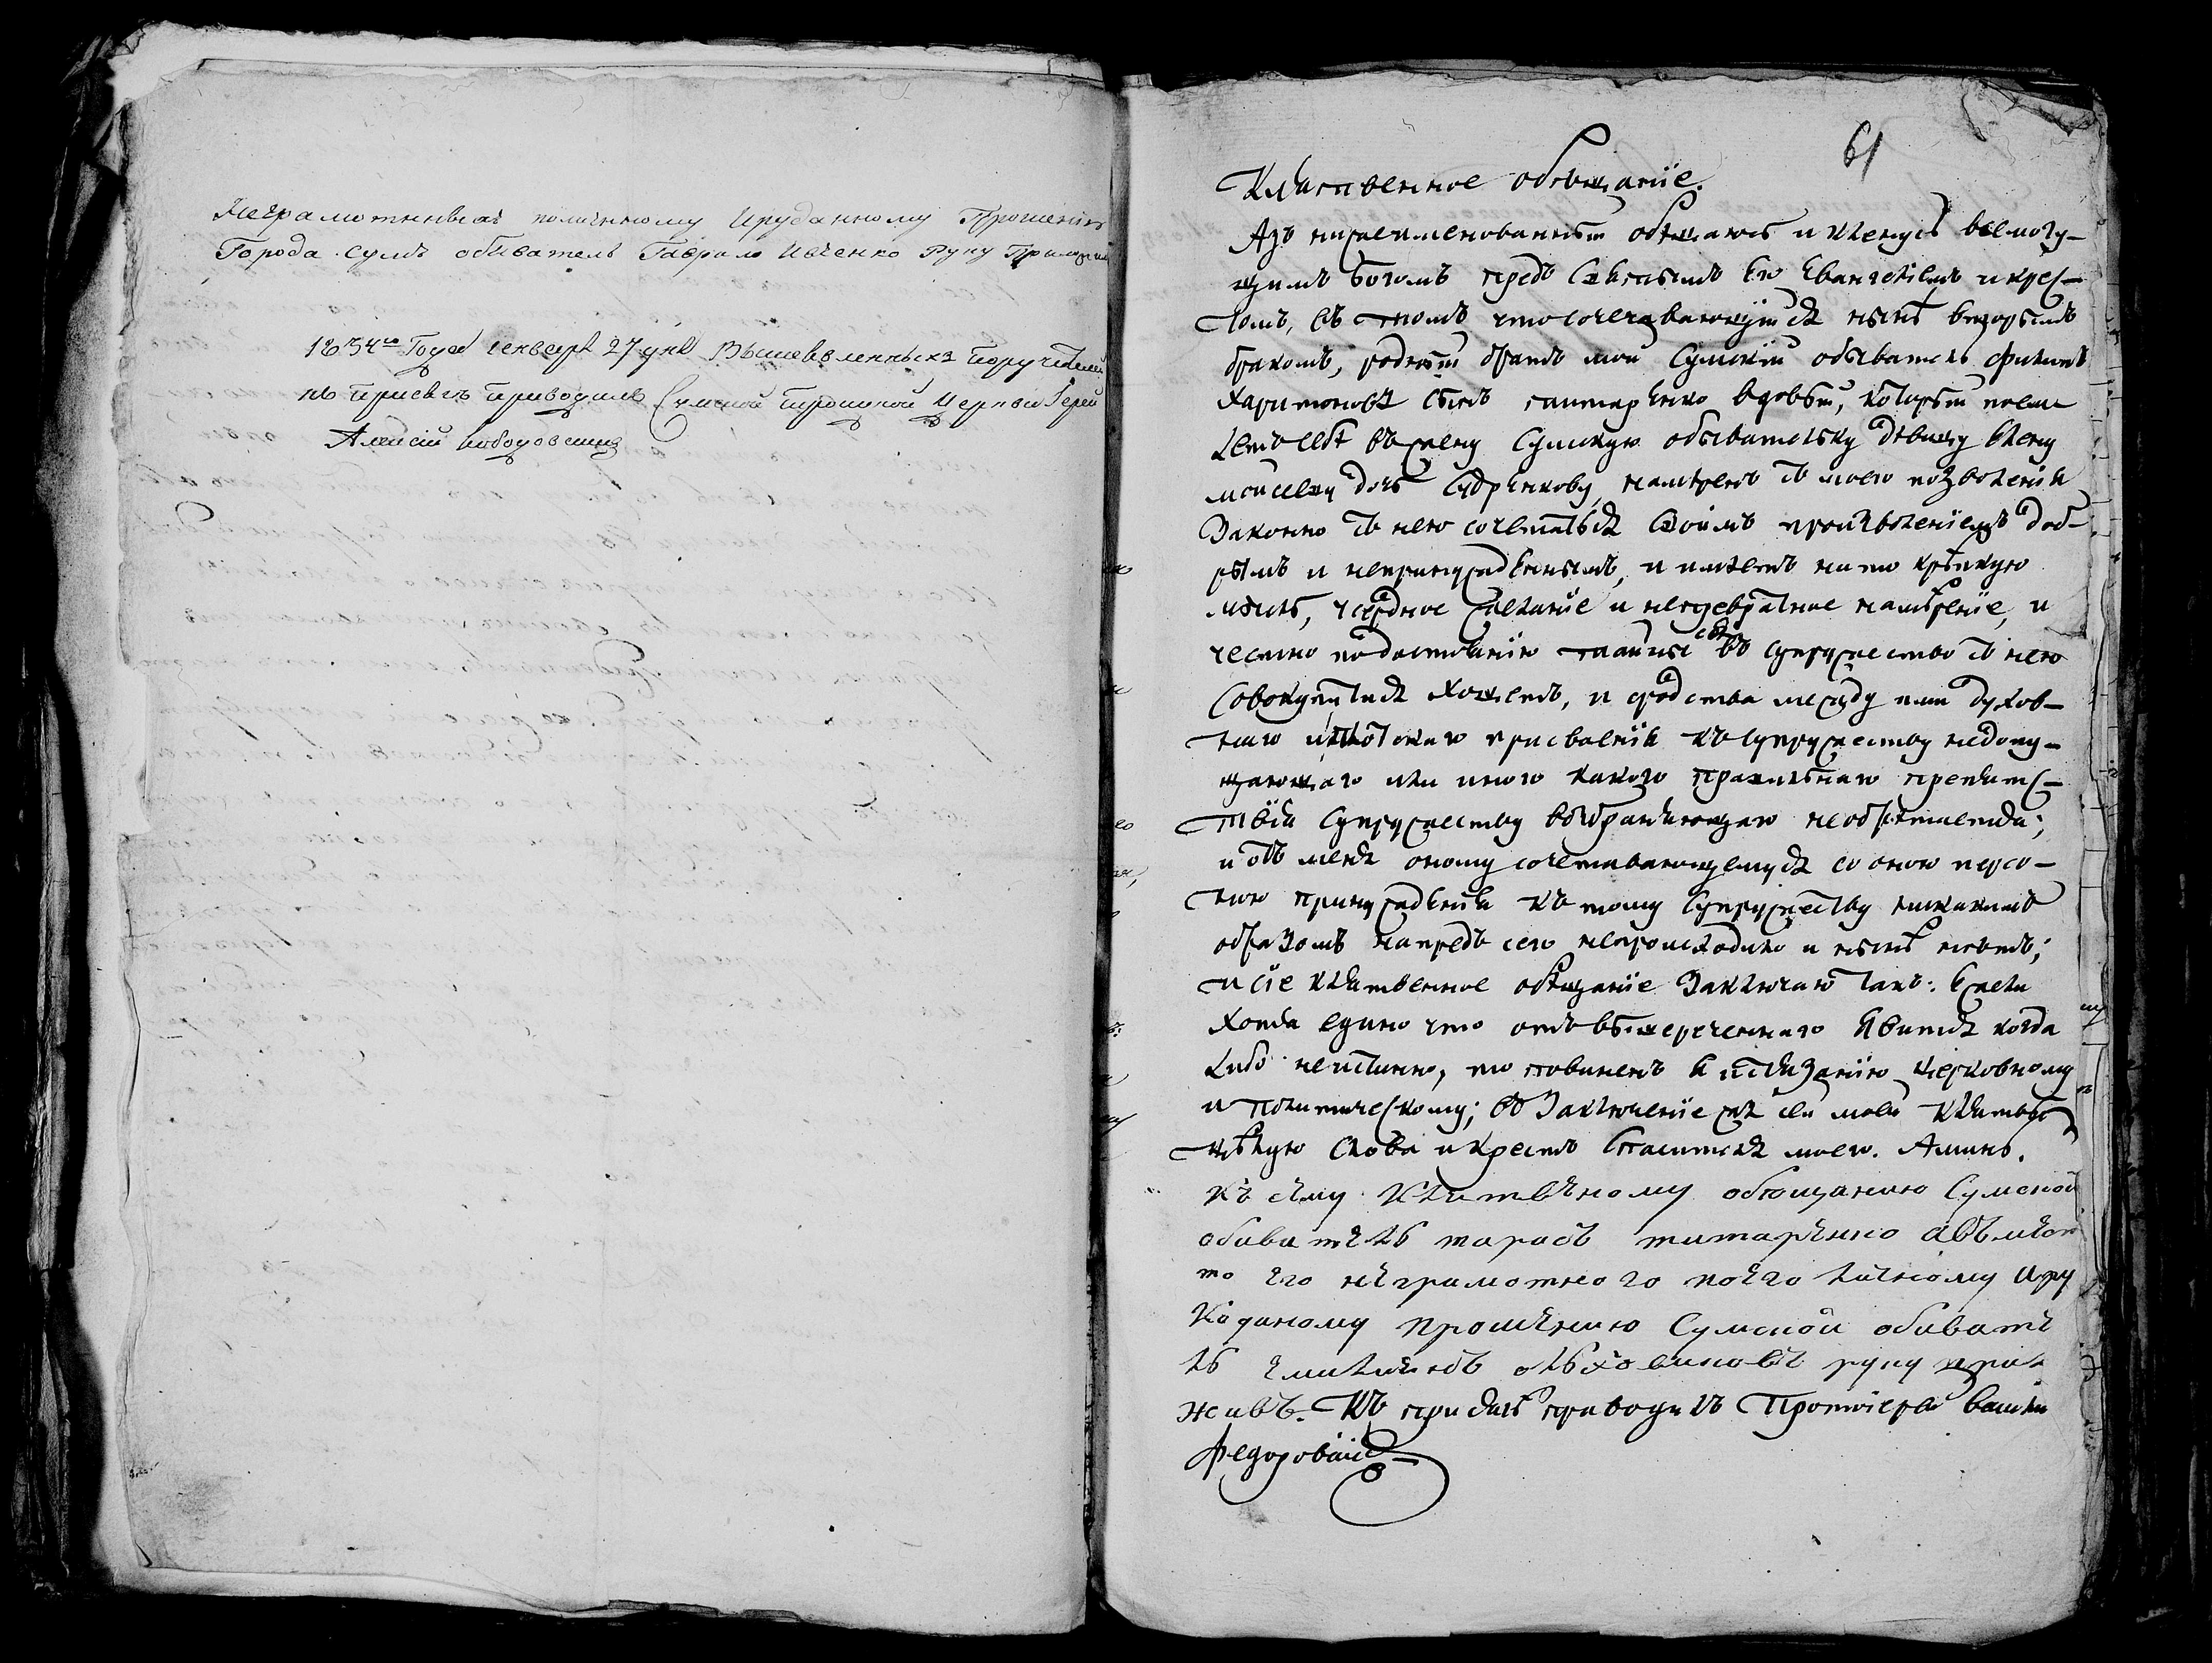 Неграмотныхъ поличному Ируданному Прошенію
Города Сумъ обиватель Гаврило Ивченко Руку Приложил
1834го Года генваря 27 дня Вышеявленныхъ поручителей
къ присягѣ приводилъ Сумской Троицкой Церкви Іерей
Алексій
61
Клятвенное обѣщаніе.
Азъ нижеименованный обѣщаюсь и кленусь всемогу-
щимъ Богомъ предъ Святымъ Его Евангеліемъ и крес-
томъ, въ томъ что сочетавающійся нынѣ вторымъ
бракомъ, родный братъ мой Сумскій обыватель Филипъ
Харитоновъ сынъ титаренко вдовый, который поем-
летъ себѣ въ жену Сумскую обывательку дѣвицу Елену
моисееву дочь намѣренъ съ моего позволенія
Законно съ нею сочетаться своимъ произволеніемъ доб-
рымъ и непринужденнымъ, и имѣетъ на то крѣпкую
мысль, усердное желаніе и непревратное намѣреніе, и
честно по достоянію тайны сея въ супружество съ нею
совокупиться хощетъ, и сродства между ими духов-
наго и плотскаго присвоенія къ супружеству недопу-
щающаго или иного какого правильнаго препятс-
твія супружеству возбраняющаго необрѣтается;
и отъ меня оному сочетавающемуся со оною персо-
ною принужденія къ тому супружеству никакимъ
образомъ напредь сего непроисходило и нынѣ нѣтъ;
и сіе клятвенное обѣщаніе Заключаю такъ: Ежели
хотя едино что отъ вышереченнаго явится когда
либо неистинно, то повиненъ я истязанію церковному
и политическому; въ Заключеніе же сея моея клятвы
цѣлую слова и крестъ Спасителя моего. Аминь.
къ сему клятвеному обѣщанию Сумской
обиватель тарасъ титаренко авъмѣсто
то его неграмотного поего личному иру
коданому прошению Сумской обивате
ль руку прило
живъ. Къ присягѣ приводилъ Протоіерей Васили
Федоровскій